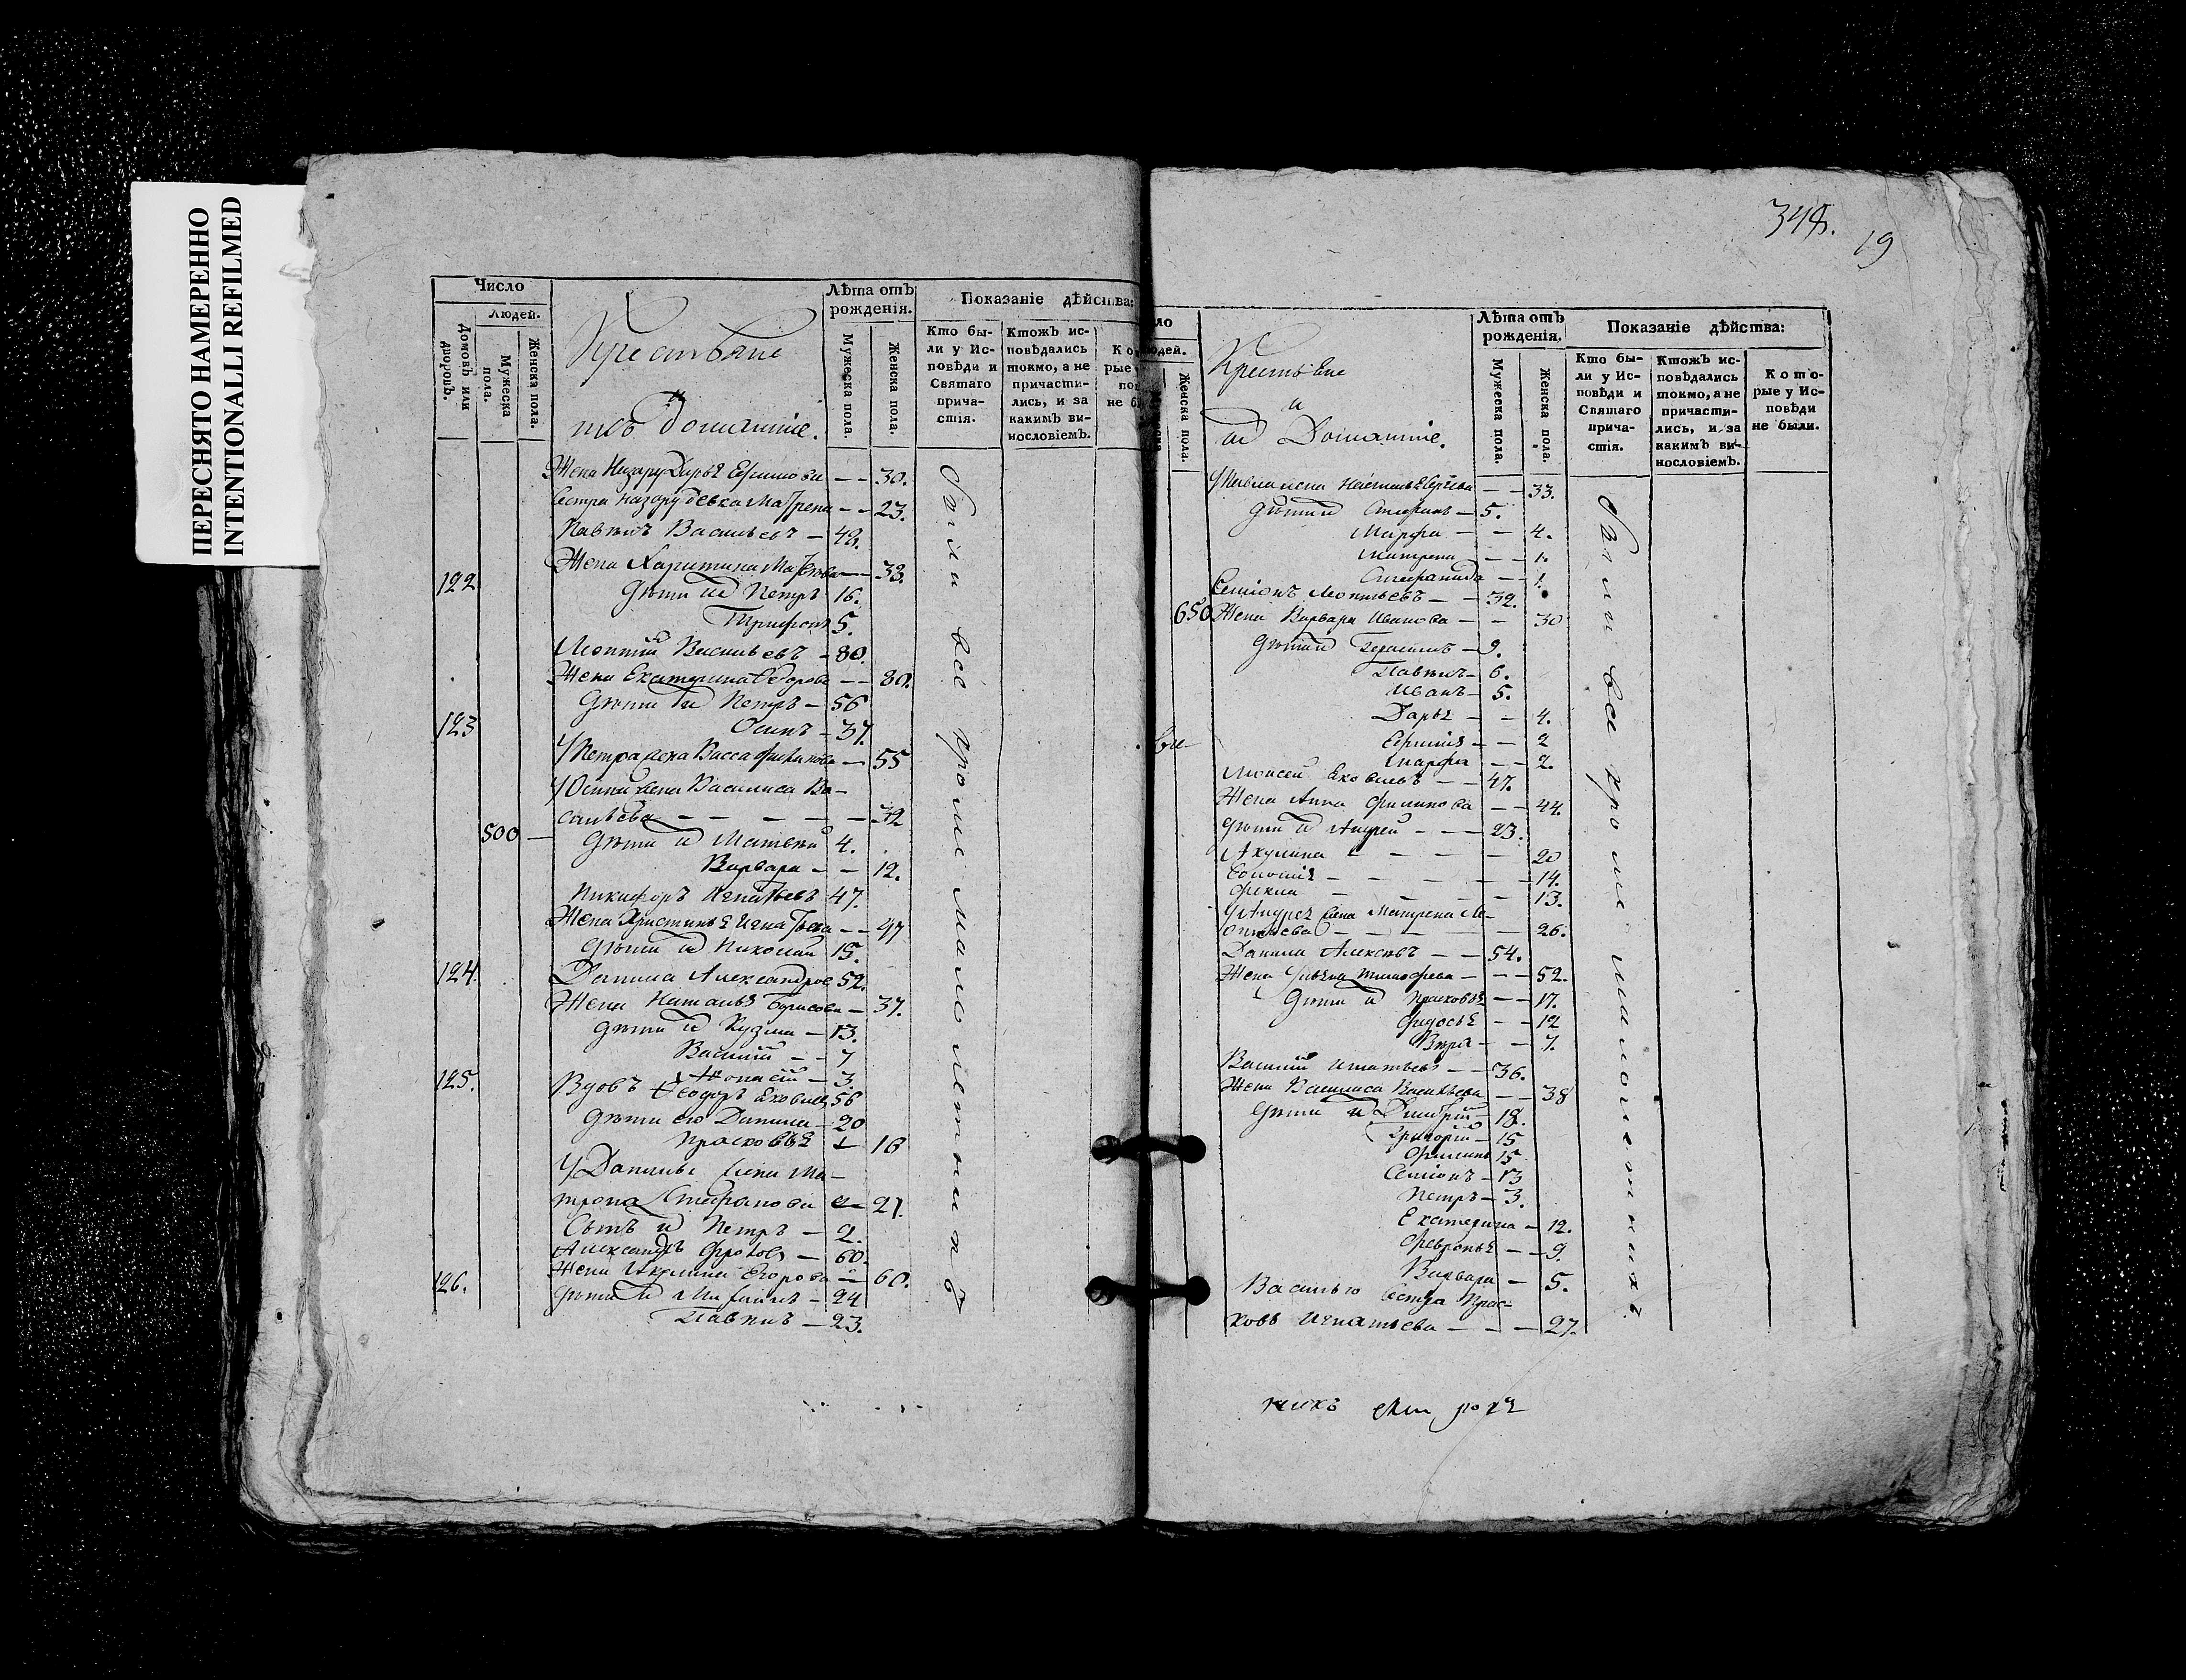 ПЕРЕСНЯТО НАМЕРЕННО
INTENTIONALLI REFILMED
Число
Людей.
Домовъ или дворовъ.
Мужеска пола.
Женска пола.
Крестьяне
и
ихъ домашніе.
Лѣта отъ рожденія.
Мужеска пола.
Женска пола.
Показаніе дѣйства:
Кто были у Исповѣди и Святаго причастія.
Ктожъ исповѣдались токмо, а не причастились, и за какимъ винословіемъ.
Жена Назару Дарья Ефимова — — 30.
Сестра Назару девка Матрена — — 23.
Павилъ Васильевъ — 48.
Жена Харитина — — 33.
122 Дѣти их Петръ 16.
Трифонъ 5.
Леонтій Васильевъ — 80.
Жена Екатерина Федорова — — 80.
Дѣти их Петръ — 56
123 Осипъ — 37.
У Петра жена Васса Филипова — 55
У Осипа жена Василиса Ва-
сильева — — — — — 32
500 — Дѣти их Матвей 4.
Варвара — — 12.
Никифоръ Игнатьевъ 47.
Жена Христинья Игнатьева — — 47
Дѣти их Николай 15.
124. Данила Александровъ 52.
Жена Наталья Борисова — 37.
Дѣти их Кузма — 13.
Василій — — 7
Афонасій — 3.
125. Вдовъ Феодоръ Яковлевъ 56
Дѣти его Данила — 20
Прасковья — 18
У Данилы жена Ма-
трона Стефанова — — 21.
Сынъ их Петръ — 2.
Александръ Фролов — 60.
Жена Акулина Егорова — 60.
126. Дѣти их — 24
Павилъ — 23.
Были все кроме малолетнихъ
348.
19
Женска пола.
Крестьяне
и
их Домашніе.
Лѣта отъ рожденія.
Мужеска пола.
Женска пола.
Показаніе дѣйства:
Кто были у Исповѣди и Святаго причастія.
Ктожъ исповѣдались токмо, а не причастились, и за какимъ винословіемъ.
Которые у Исповѣди не были.
жена Настасья Сергѣева — — 33.
Дѣти их Стефанъ — 5.
Марфа — — 4.
Матрена — — 1.
Стефанида — 1.
Семіонъ Леонтьевъ — — 32.
650 Жена Варвара Иванова — — 30
Дѣти их Герасимъ — 9.
Павилъ — 6.
Иванъ — 5.
Дарья — — 4.
— — 2
Марфа — — 2.
Моисей Яковлевъ — — 47.
Жена Анна Филипова — — 44.
Дѣти их Андрей — — — 23.
Акулина — — — — 20
Соломія — — — — — 14.
Фекла — — — — 13.
У Андрея жена Матрена Ле-
онтьева — — — — — 26.
Данила Алексѣвъ — — 54.
Жена Ульяна Тимофеева — — — 52.
Дѣти их Прасковья — — 17.
Федосья — — 12
— — 7.
Василій Игнатьевъ — — 36.
Жена Василиса Васильева — — 38
Дѣти их Дмитрій — 18.
Григорій — 15
Филипъ 15
Семіонъ — 13
Петръ — 3.
Екатерина — 12.
Февронья — — 9.
Варвара — 5.
Василью сестра Прас-
ковья Игнатьева — — — 27.
Были все кроме малолетнихъ.